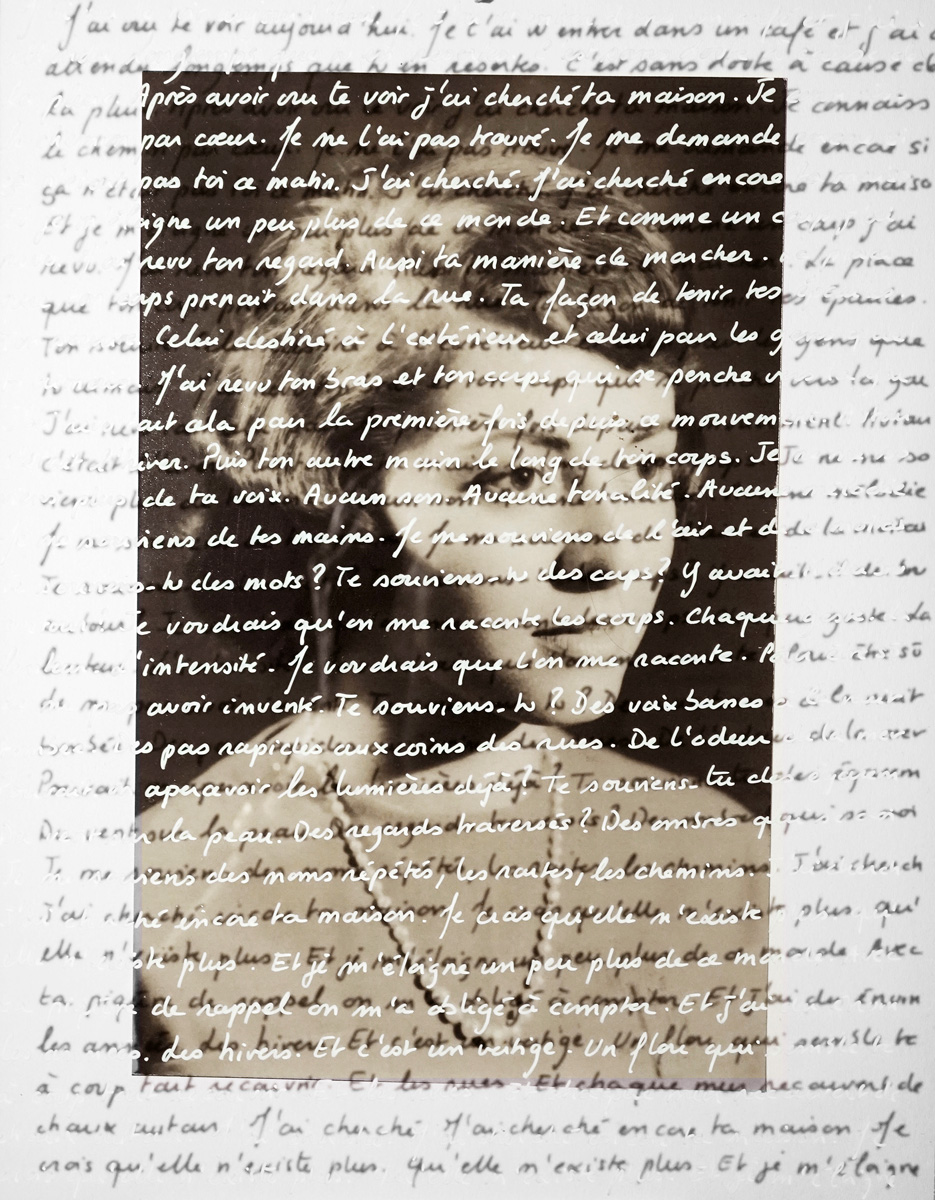 J'ai cru te voir aujourd'hui. Je t'ai vu entrer dans un café et j'ai
attendu longtemps que tu en ressortes. C'est sans doute à cause de
la pluie Après avoir cru te voir j'ai cherché ta maison. Je connais
le chemin par cœur. Je ne l'ai pas trouvé. Je me demande encore si
ça n'était pas toi ce matin. J'ai cherché. J'ai cherché encore ta maison
Et je m'éloigne un peu plus de ce monde. Et comme un coup j'ai
revu. J'ai revu ton regard. Aussi ta manière de marcher. La place
que ton corps prenait dans la rue. Ta façon de tenir tes épaules.
Ton Celui destiné à l'extérieur et celui pour les gens que
tu aimes J'ai revu ton bras et ton corps qui se penche vers
J'ai cela par la première fois depuis ce mouvement.
c'était hiver. Puis ton autre main le long de ton corps. Je ne me
plus de ta voix. Aucun son. Aucune tonalité. Aucune mélodie
Je me souviens de tes mains. Je me souviens de l'air et de la
Te souviens-tu des mots ? Te souviens-tu des corps ? Y avait-il
Je voudrais qu'on me raconte les corps. Chaque geste. La
lenteur l'intensité. Je voudrais que l'on me raconte. Pour être sû
de ne pas avoir inventé. Te souviens-tu ? Des voix basses à la nuit
tombée des pas rapides aux coins des rues. De l'odeur de la mer
Pouvait apercevoir les lumières déjà ? Te souviens-tu des
Du vent sur la peau. Des regards traversés ? Des ombres qui
Je me souviens des noms répétés, les routes, les chemins. J'ai cherch
J'ai cherché encore ta maison. Je crois qu'elle n'existe plus. qu'
elle n'existe plus. Et je m'éloigne un peu plus de ce monde. Avec
ta de rappel on m'a obligé à compter. Et j'ai du
les années. des hivers. Et c'est un vertige. Un flou qui semble te
à coup tout recouvrir. Et les rues. Et chaque mur recouvert de
chaux autour. J'ai cherché J'ai cherché encore ta maison. Je
crois qu'elle n'existe plus. Qu'elle n'existe plus. Et je m'éloigne